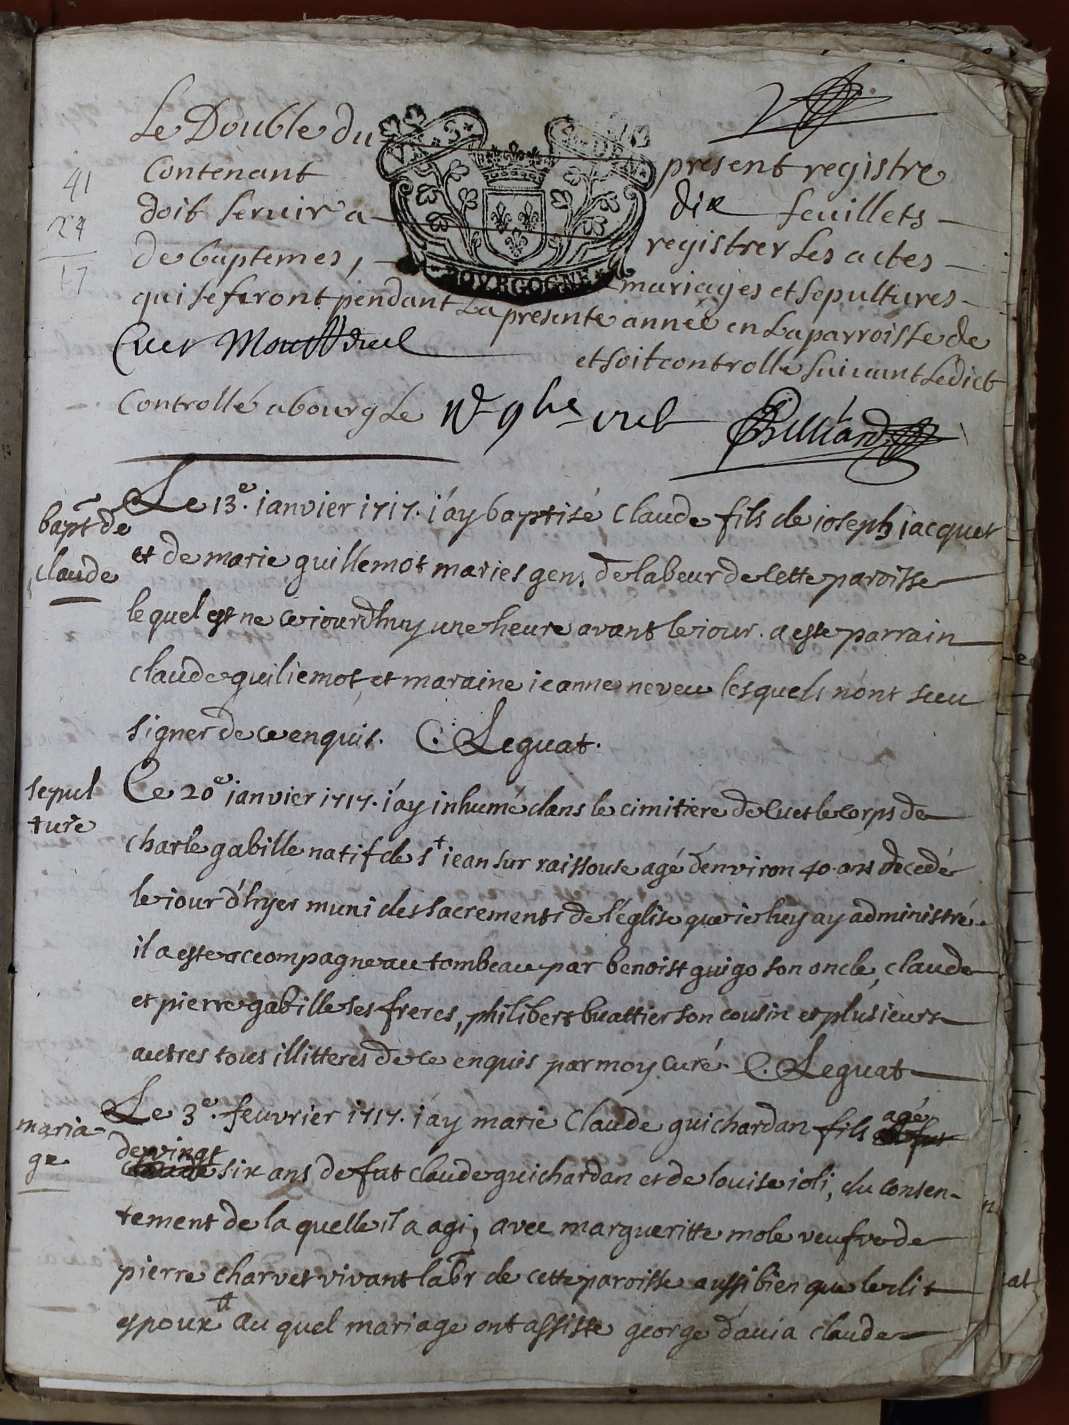 Le Double du présent registre
Contenant dix feuillets
doit servir a registrer Les actes
de baptemes, mariages et sepultures
qui se feront pendant La presente année en La parroisse de
Cuet et soit controllé suivant Ledict
Controllé a bourg Le
Billiard
BOVRGOGNE
41
24
17
bapt de
claude
Le 13e. ianvier 1717. i'ay baptisé Claude fils de ioseph iacquet
et de marie guillemot maries gens de labeur de cette paroisse
le quel est ne ce iourdhuy une heure avant le iour. a este parrain
claude guillemot, et maraine ieanne neveu lesquels nont sceu
signer de ce enquis. C. Leguat.
sepul
ture
Ce 20e ianvier 1717. i'ay inhumé dans le cimitiere de Cuet le corps de
charle gabille natif de st iean sur raissouse agé d'environ 40 ans decedé
le iour d'hyer muni des sacrements de l'église que ie luy ay administré
il a este accompagne au tombeau par benoist guigo son oncle, claude
et pierre gabille ses freres, philibert buattier son cousin et plusieurs
autres tous illitteres de ce enquis par moy curé. C. Leguat
maria-
ge
Le 3e. feuvrier 1717. i'ay marié Claude guichardan fils agé
de vingt six ans de fut claude guichardan et de louise ioli, du consen-
tement de la quelle il a agi, avec margueritte mole veufve de
pierre charvet vivant labr de cette paroisse aussi bien que lesdit
espoux au quel mariage ont assiste george d'avia claude